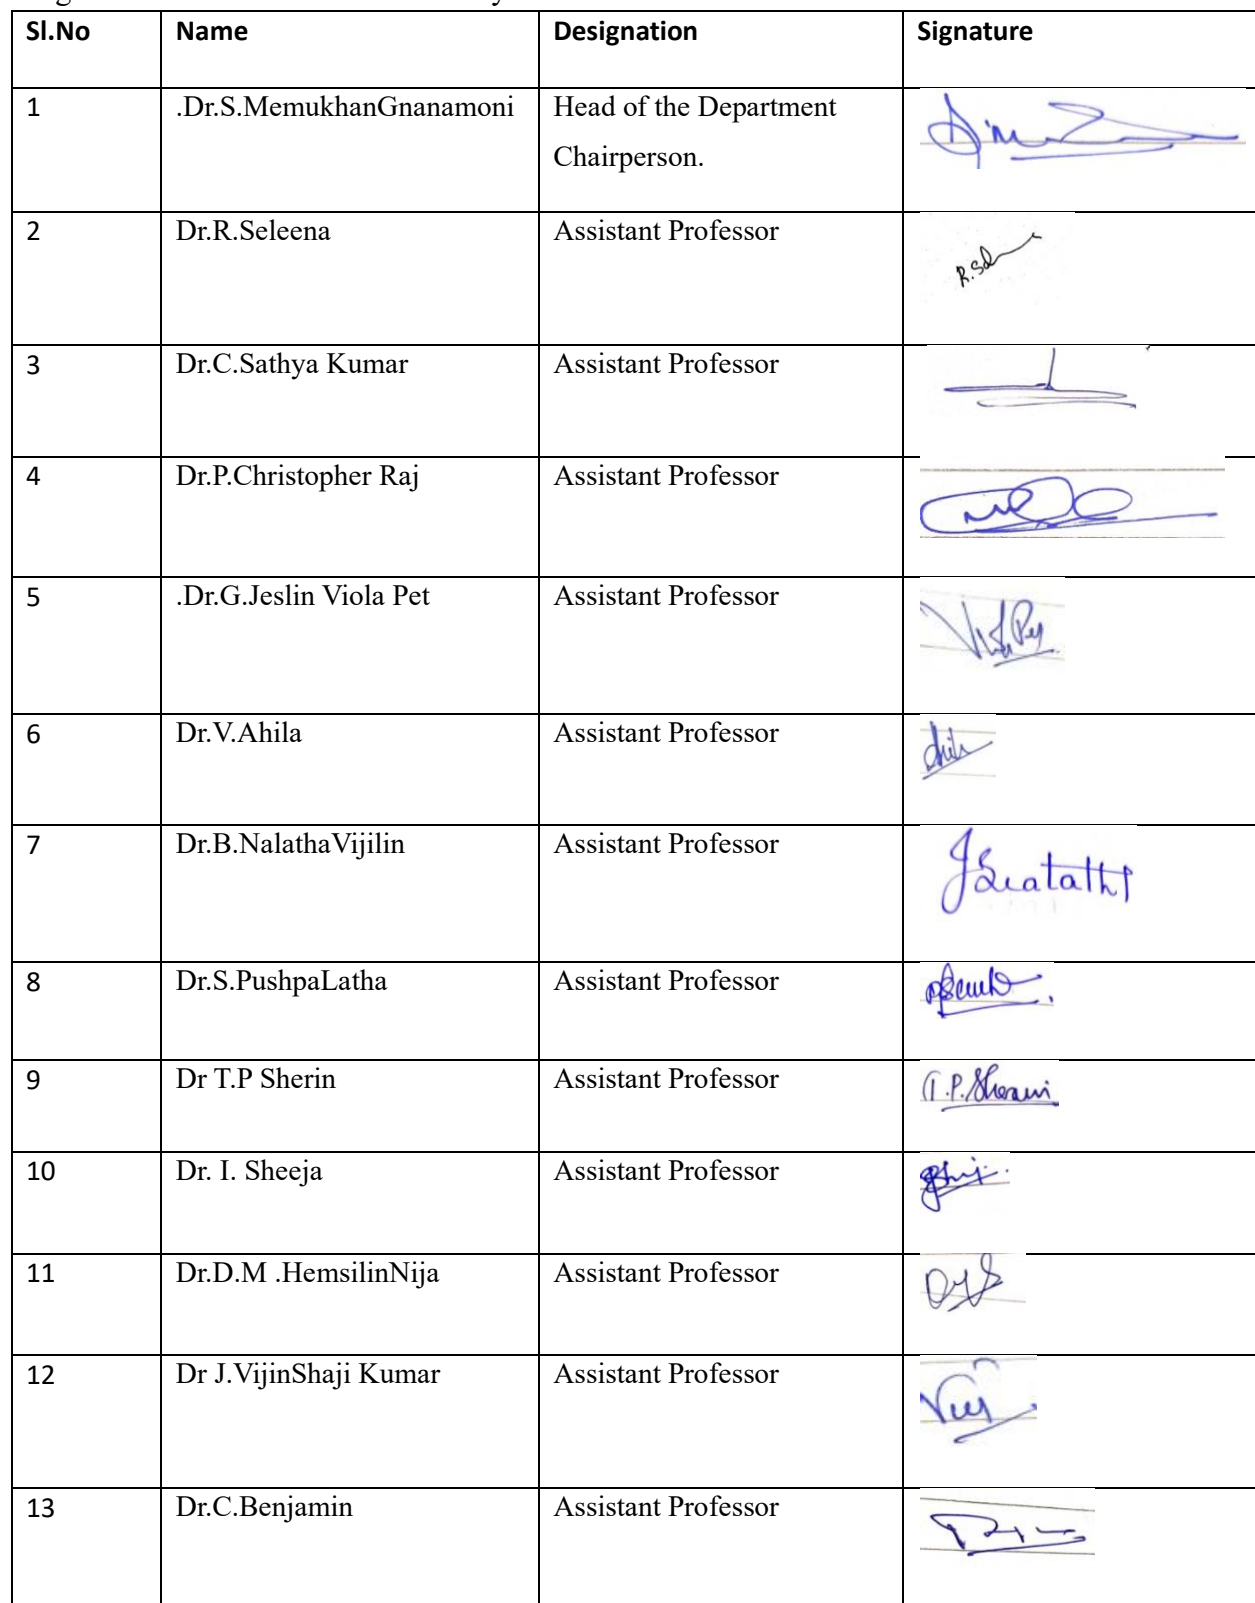 Sl.No Name Designation Signature
1 .Dr.S.MemukhanGnanamoni Head of the Department
Chairperson.
2 Dr.R.Seleena Assistant Professor
3 Dr.C.Sathya Kumar Assistant Professor
4 Dr.P.Christopher Raj Assistant Professor
5 .Dr.G.Jeslin Viola Pet Assistant Professor
6 Dr.V.Ahila Assistant Professor
7 Dr.B.NalathaVijilin Assistant Professor
8 Dr.S.PushpaLatha Assistant Professor
9 Dr T.P Sherin Assistant Professor T.P.Sherin
10 Dr. I. Sheeja Assistant Professor
11 Dr.D.M .HemsilinNija Assistant Professor
12 Dr J.VijinShaji Kumar Assistant Professor
13 Dr.C.Benjamin Assistant Professor